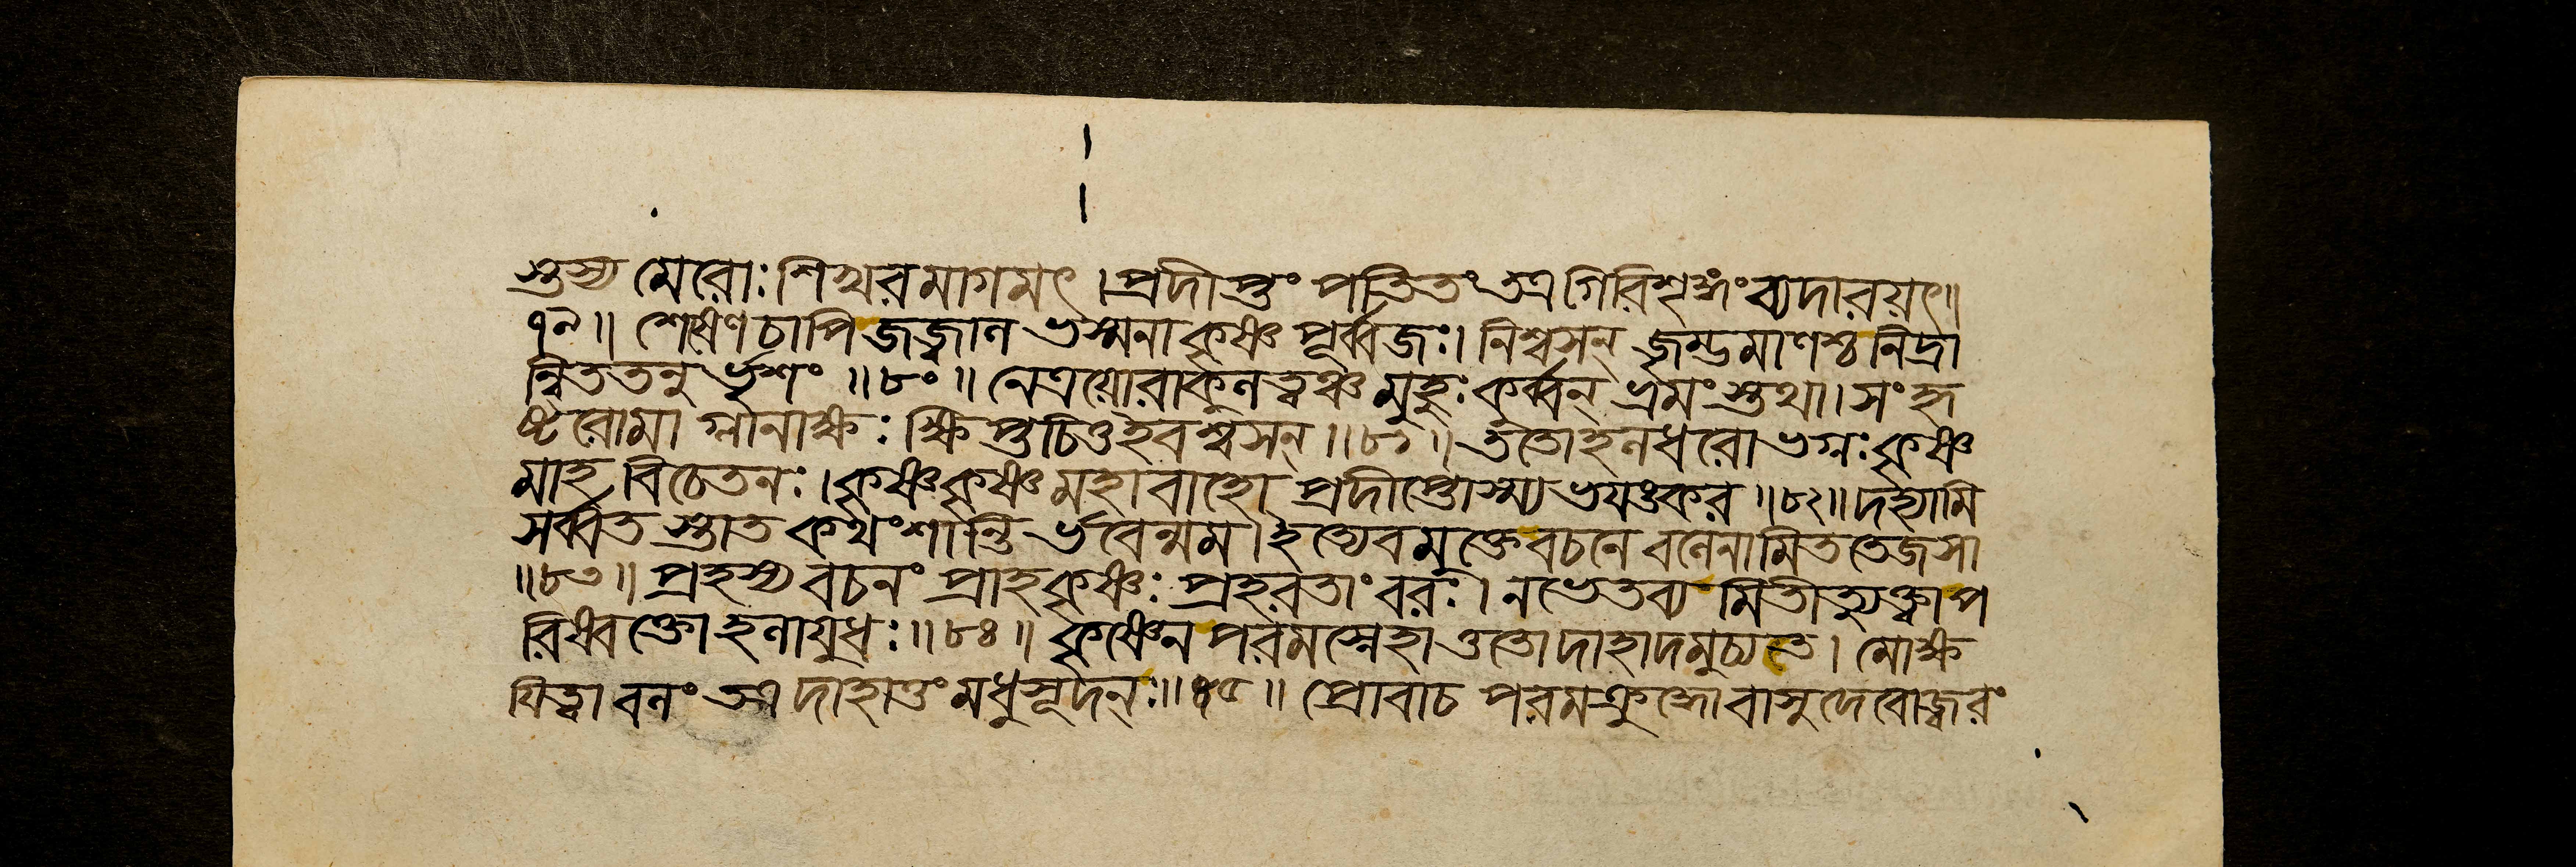 স্তস্য মেরোঃ শিখরমাগমৎ । প্রদীপ্তং পতিতং তত্র গিরিশৃঙ্গং ব্যদারয়ৎ॥
৭৯॥ শেষেণ চাপি জজ্বাল ভস্মনা কৃষ্ণ পূর্ব্বজঃ। নিশ্বসন্ জৃম্ভমাণশ্চ নিদ্রা
ন্বিততনু র্ভৃশং ॥৮০॥ নেত্রয়োরাকুলত্বঞ্চ মুহুঃ কুর্ব্বন্ ভ্রমংস্তথা। সংহৃ
ষ্টরোমা গ্লানাক্ষঃ ক্ষিপ্তচিত্ত ইব শ্বসন্ ॥৮১॥ ততো হলধরো ভগ্নঃ কৃষ্ণ
মাহ বিচেতনঃ। কৃষ্ণ কৃষ্ণ মহাবাহো প্রদীপ্তোস্ম্য ভয়ঙ্কর ॥৮২॥ দহ্যামি
সর্ব্বত স্তাত কথং শান্তি র্ভবেন্মম। ইত্যেবমুক্তে বচনে বলেনামিততেজসা
॥৮৩॥ প্রহস্য বচনং প্রাহ কৃষ্ণঃ প্রহরতাং বরঃ। ন ভেতব্য মিতীত্যুক্ত্বা প
রিষ্বক্তো হলায়ুধঃ॥৮৪॥ কৃষ্ণেন পরমস্নেহাত্ততো দাহাদমুচ্যত। মোক্ষ
যিত্বা বলং তত্র দাহাত্তং মধুসূদনঃ॥৮৫॥ প্রোবাচ পরমক্রুদ্ধো বাসুদেবো জ্বরং